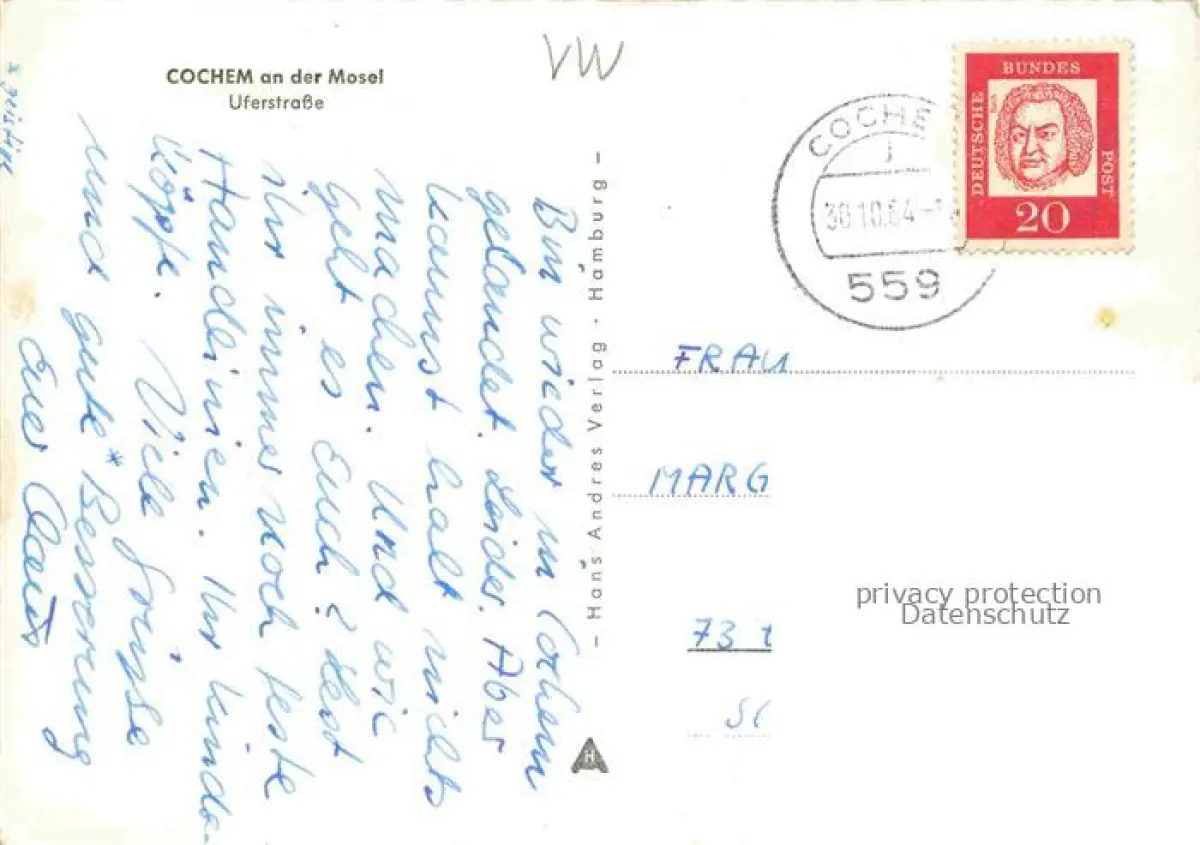 COCHEM an der Mosel
Uferstraße
VW
DEUTSCHE
BUNDES
POST
20
COCHE
30.10.64-1
559
Bin wieder in Cochem
gelandet. Leider. Aber
kannst halt nichts
machen. Und wie
geht es Euch? Habt
ihr immer noch feste
Hand
Köpfe. Viele Grüsse
und gute* Besserung
Euer Claus
* geistige
- Hans Andres Verlag · Hamburg -
H
FRAU
MARG
73 t
privacy protection
Datenschutz